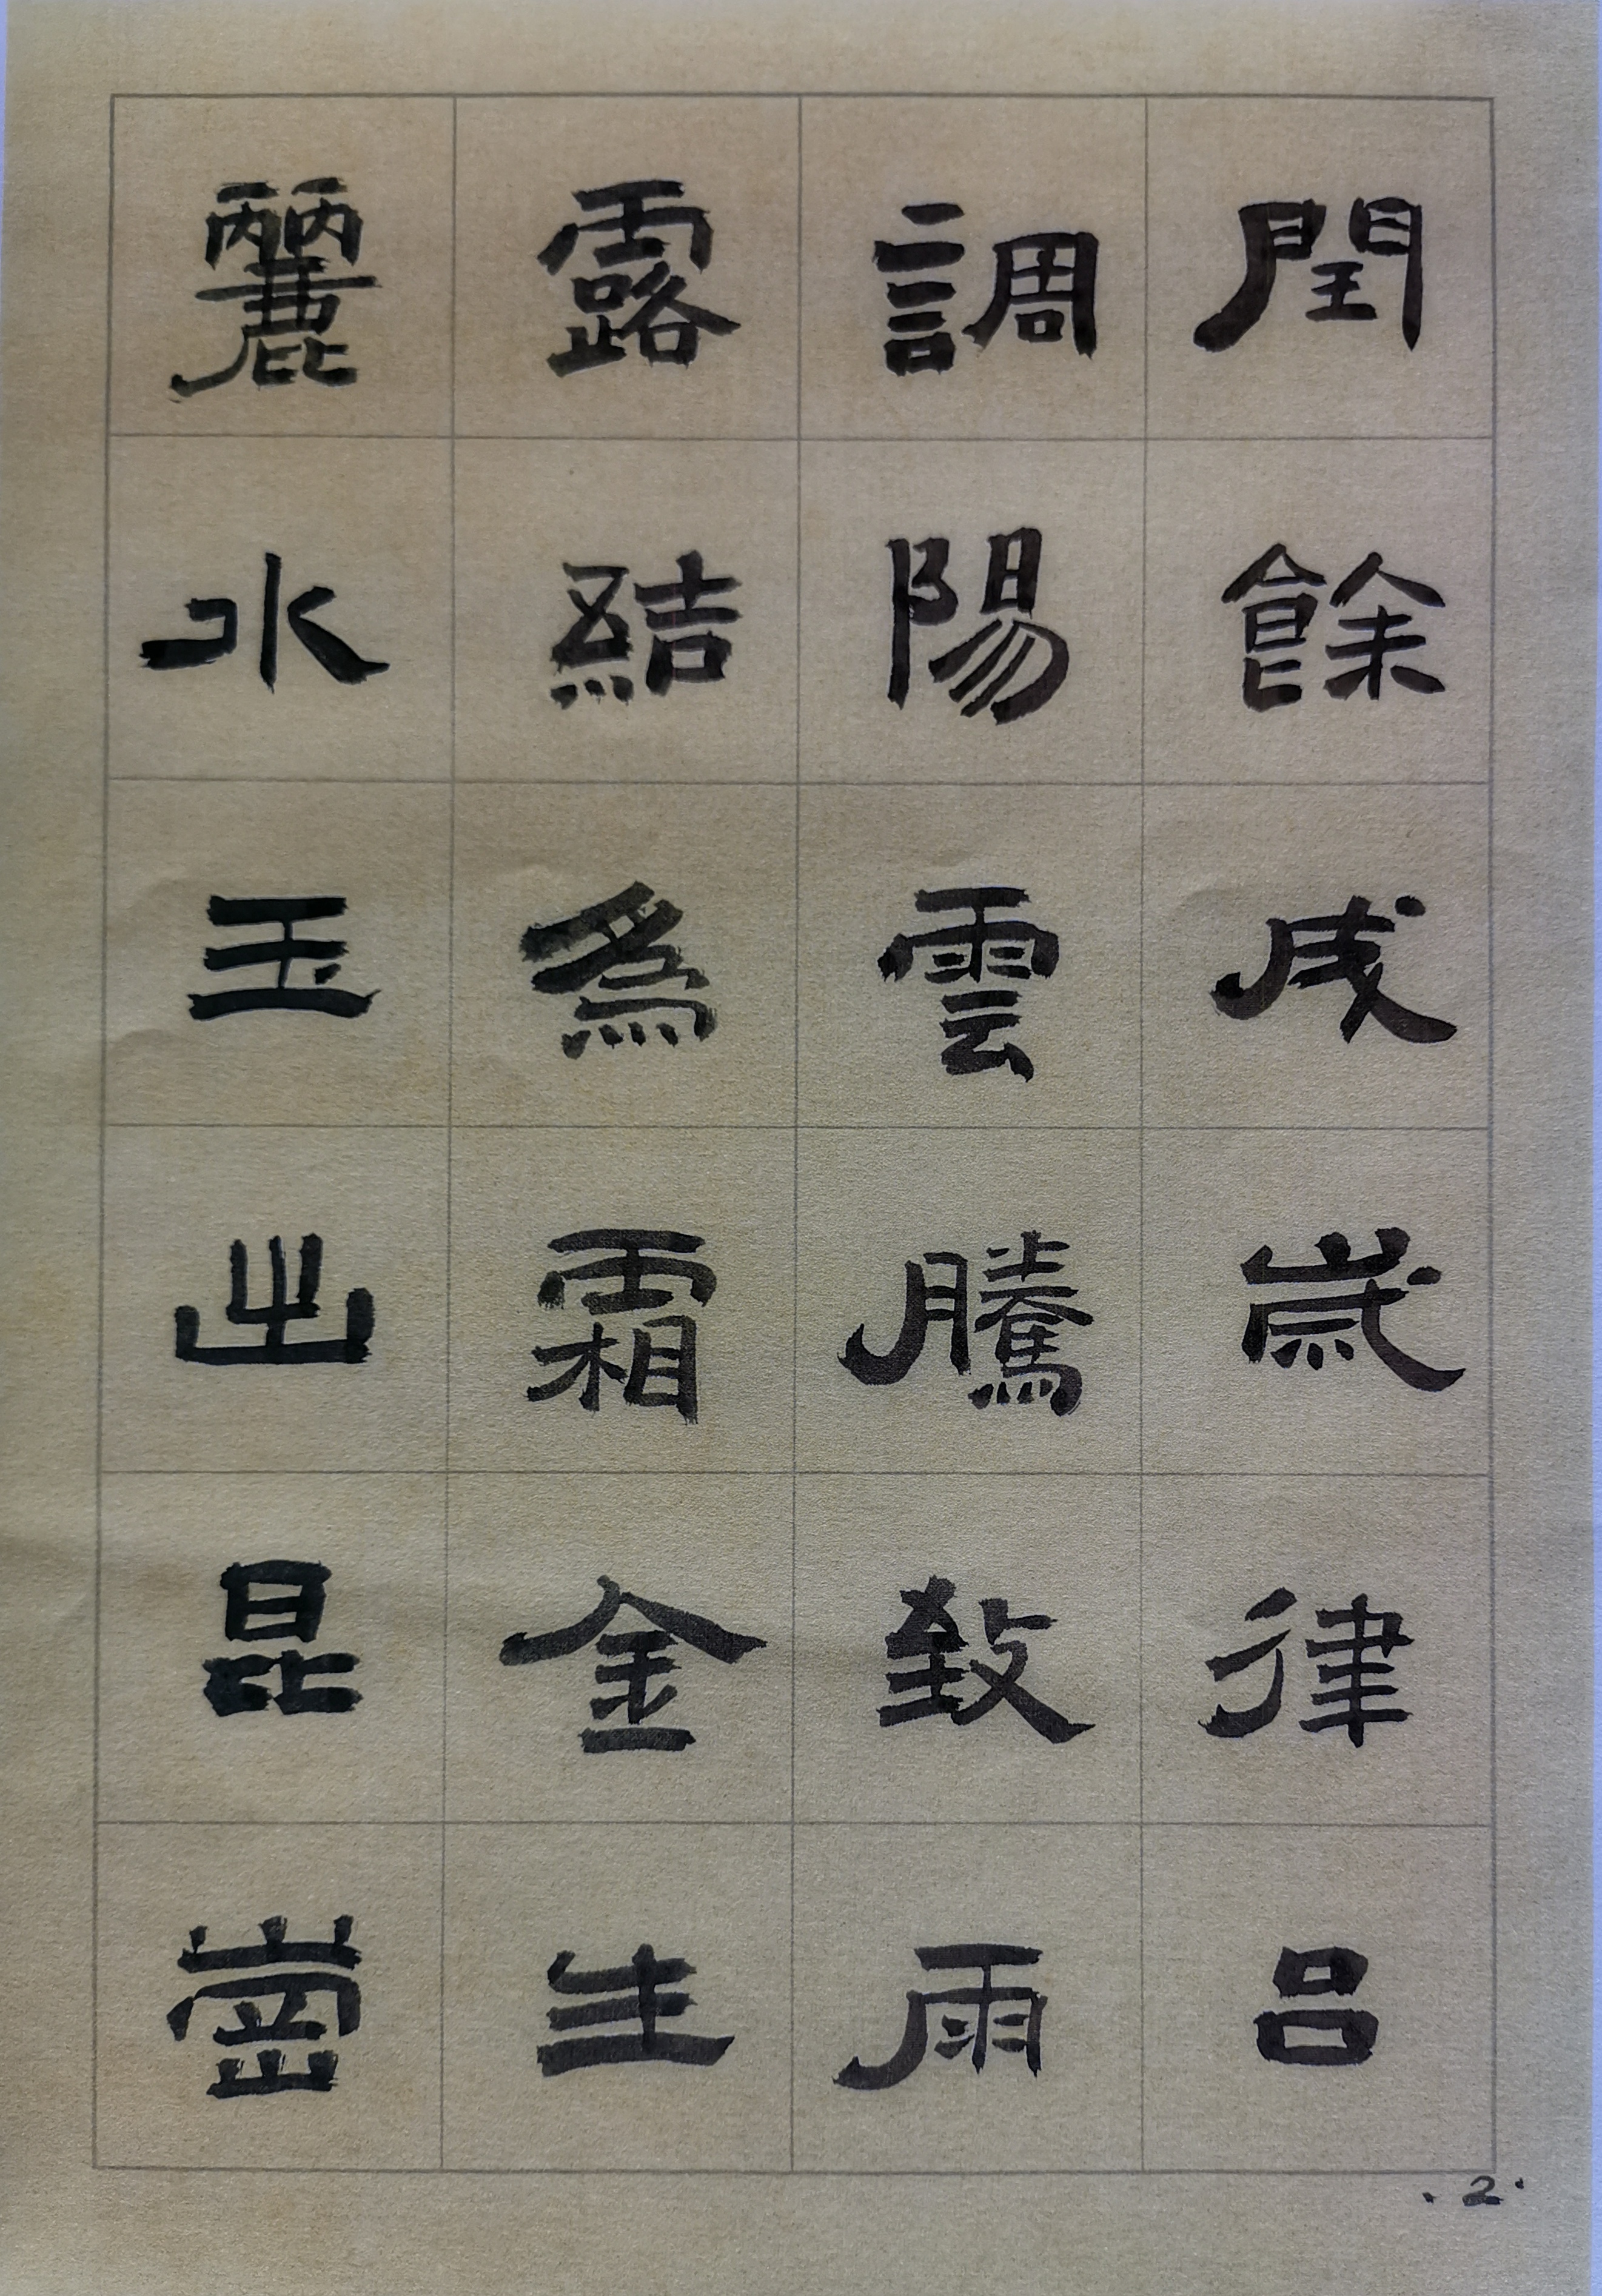 閏餘成歲律呂
調陽雲騰致雨
露結爲霜金生
麗水玉出昆崗
.2.